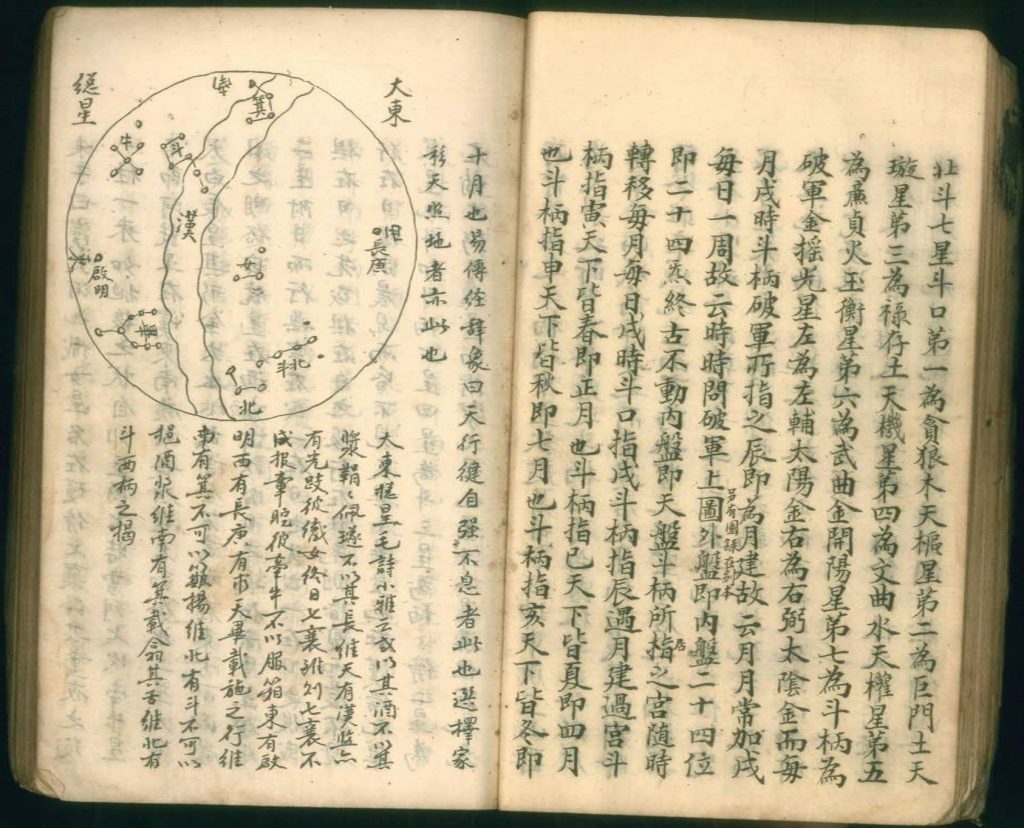 北斗七星斗口第一為貪狼木天樞星第二為巨門土天
璇星第三為祿存土天機星第四為文曲水天權星第五
為廉貞火玉衡星第六為武曲金開陽星第七為斗柄為
破軍金摇光星左為左輔太陽金右為右弼太陰金而每
月戌時斗柄破軍所指之辰即為月建故云月月常加戌
每日一周故云時時問破軍上圖外盤即内盤二十四位
即二十四炁終古不動内盤即天盤斗柄所指之宮随時
居
轉移每月每日戌時斗口指戌斗柄指辰過月建過宮斗
柄指寅天下皆春即正月也斗柄指巳天下皆夏即四月
也斗柄指申天下皆秋即七月也斗柄指亥天下皆冬即
十月也易傳作辭象曰天行健自强不息者此也選擇家
移天照地者亦此也
大東
總星
箕
斗
牛
漢
女
長庚
啟明
畢
北
斗
北
大東總星毛詩小雅云或以其酒不以其
漿鞙鞙佩璲不以其長維天有漢監亦
有光跂彼織女終日七襄雖則七襄不
成报章睆彼牽牛不以服箱東有啟
明西有長庚有捄天畢載施之行維
南有箕不可以簸揚維北有斗不可以
挹酒漿維南有箕載翕其舌維北有
斗西柄之揭